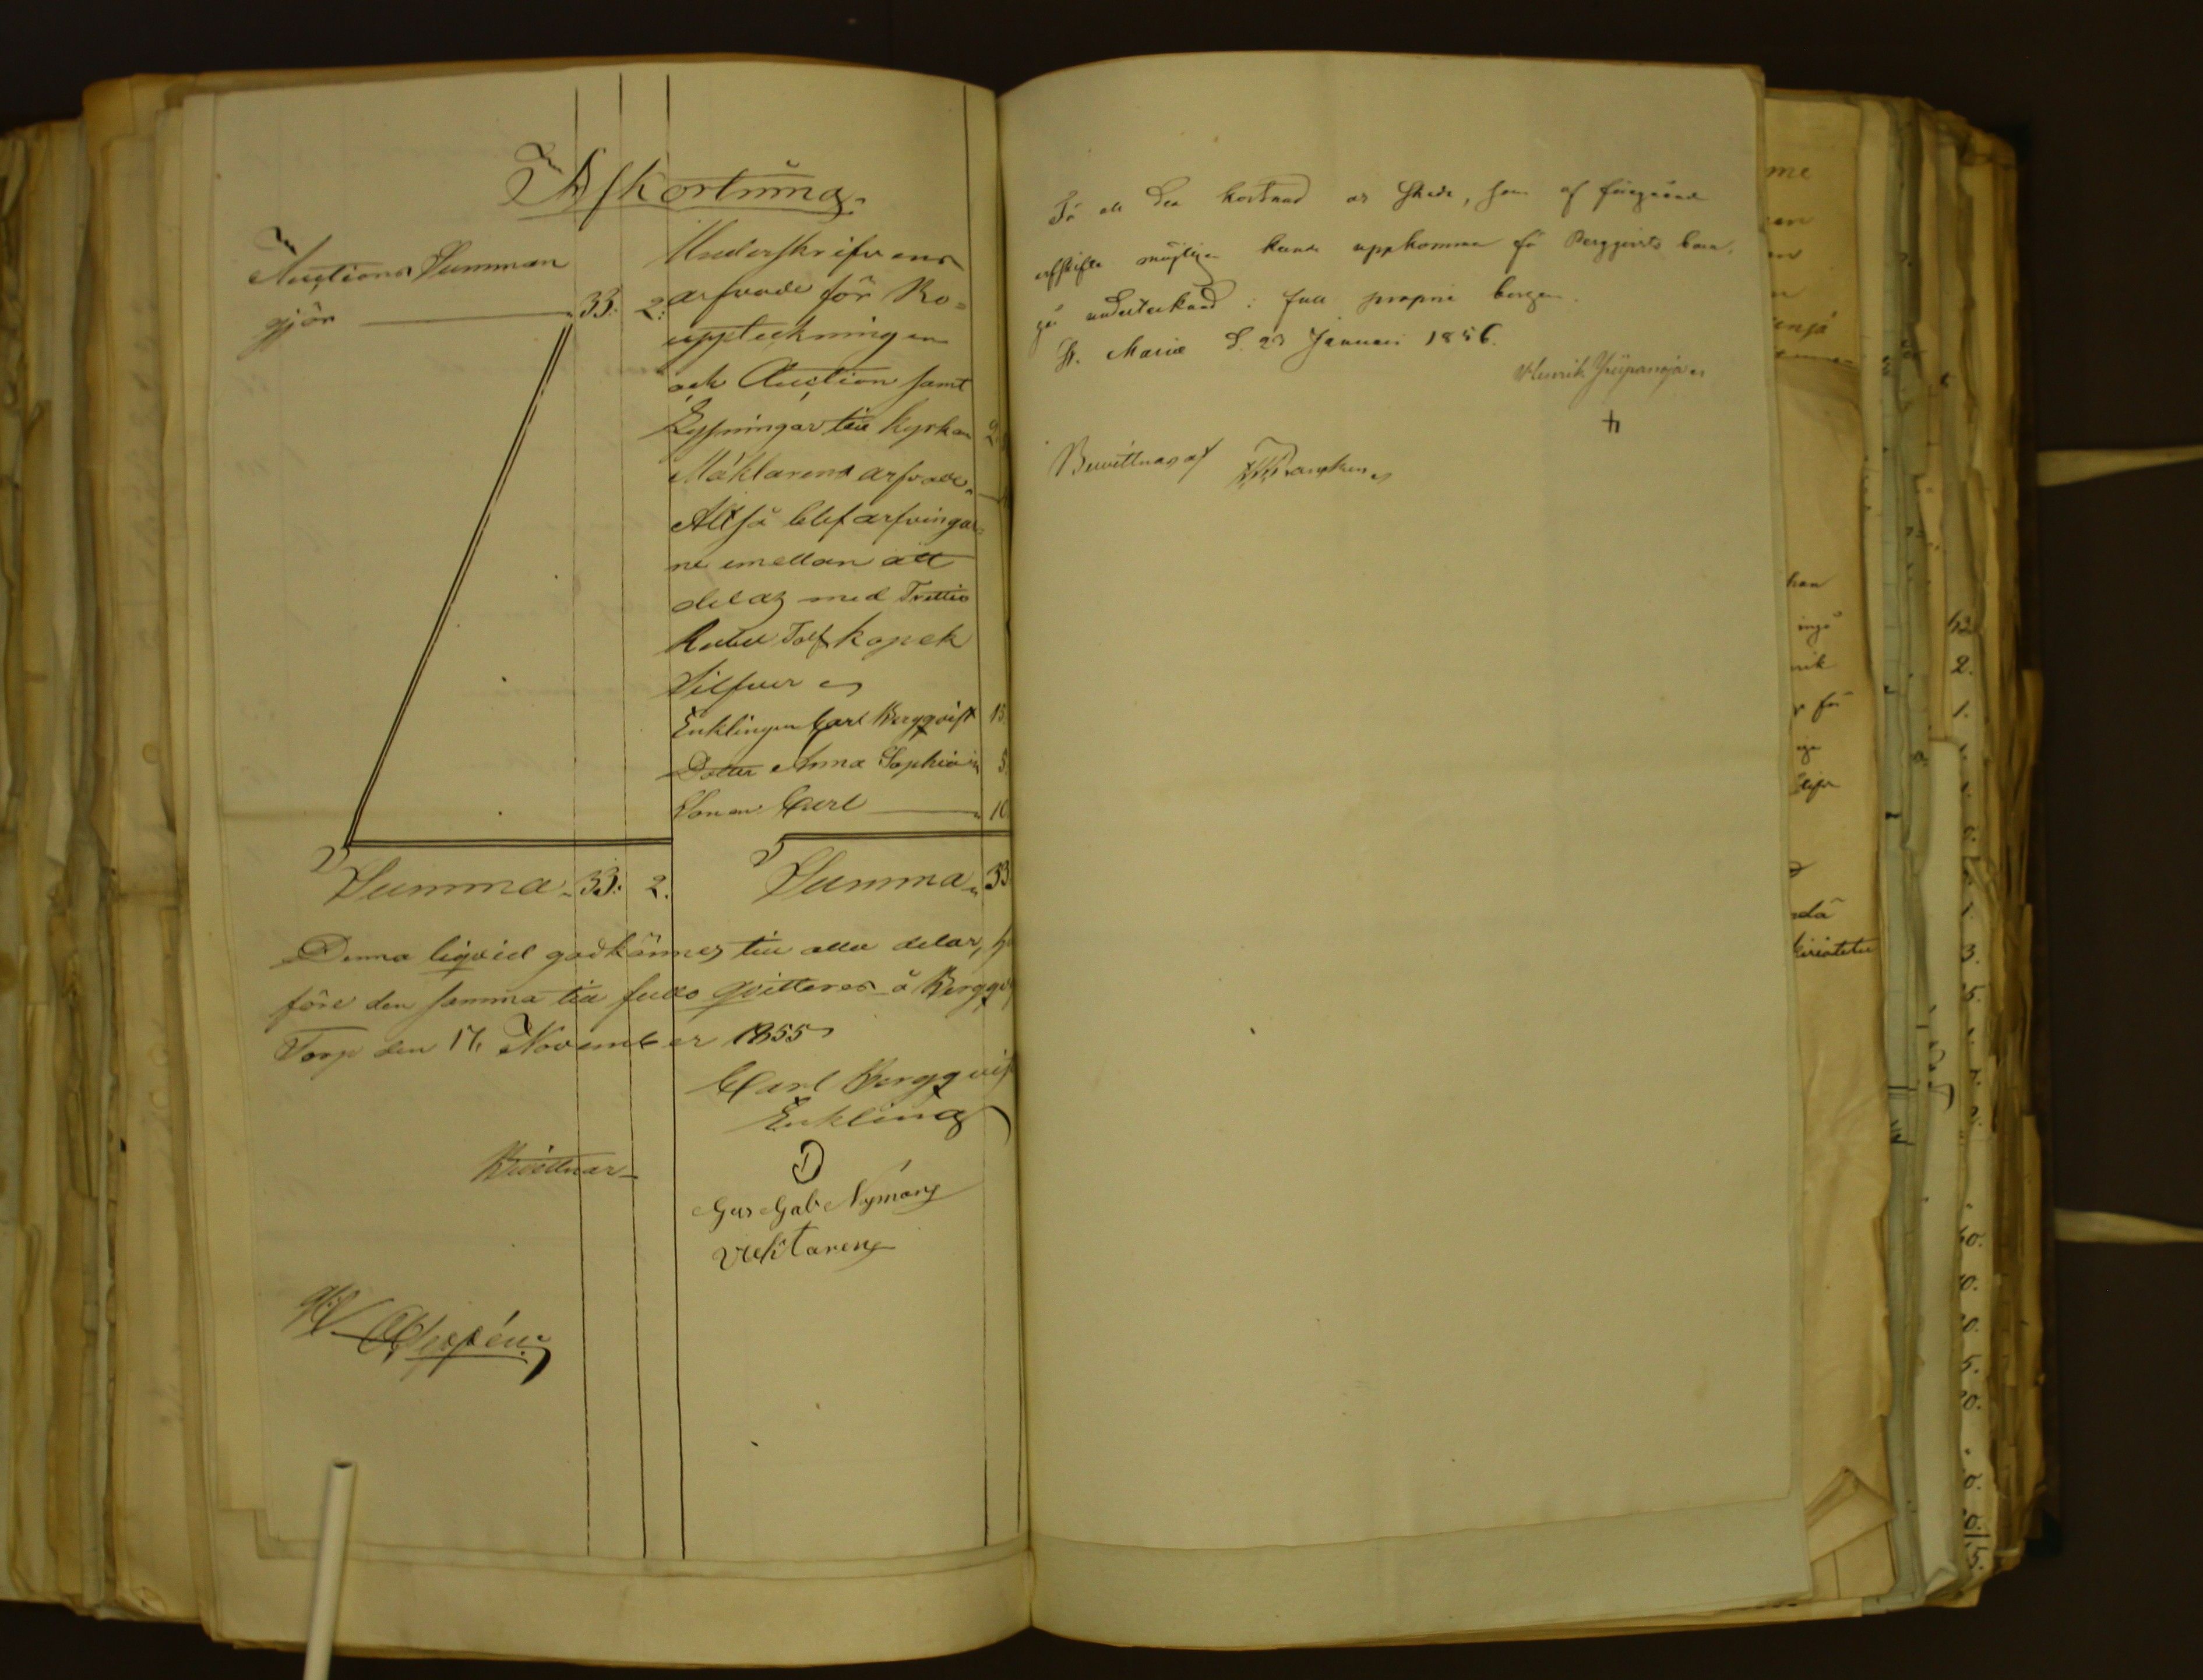 Afkortning
Auctions Summan
gjör 33: 2:
Underskrifvens
arfvode för Bo=
uppteckningen
och Auction samt
Lysningar till Kyrkan 2
Mäklarens arfvode
Altså blef arfvingar=
ne emellan att
delas med Trettio
Rubel Tolf kopek
Silfver
Enklingen Carl Bergqvist 15
Dotter Anna Sophia 5
Sonen Carl 10
Summa 33: 2.
Summa 33
Denna liqvid godkännes till alla delar,
före den samma till fullo qvitteras å
Torp den 17 November 1855
Carl Bergqvist
Enkling
Bevittnar
Gus Gab Nyman
För all den kostnad och skada, som af föregående
arfskifte möjligen kunde uppkomma för Bergqvists barn,
går undertecknad i full proprie borgen.
St. Mariæ d. 23 Januari 1856.
Henrik
Bevittnas af